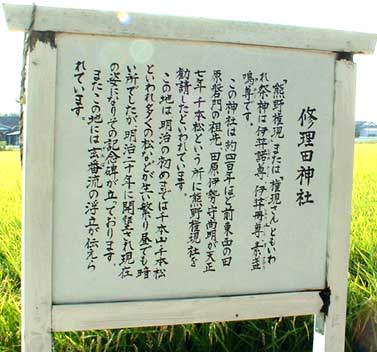 修理田神社
「熊野権現」または「権現さん」ともいわ
れ祭神は伊弉諾尊、伊弉冊尊、素盞
鳴尊です。
この神社は約四百年ほど前東西の田
原砦門の祖先、田原伊勢守尚明が天正
七年千本松という所に熊野権現社を
勧請したといわれています
この地は明治の初めまでは千本山千本松
といわれ多くの松などが生い繁り昼でも暗
い所でしたが明治二十年に開墾され現在
の姿になりその記念碑が立っております。
またこの地には出雲流の浮立が伝えら
れています。